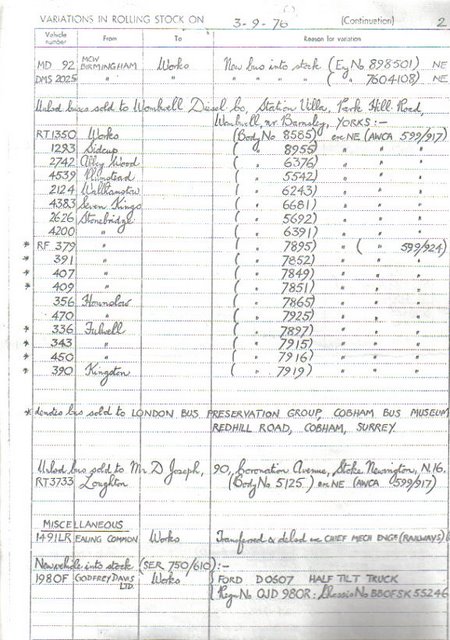 VARIATIONS IN ROLLING STOCK ON 3-9-76 (Continuation) 2
Vehicle number From To Reason for variation
MD 92 MCW BIRMINGHAM Works New bus into stock (Eng No 898501) NE
DMS 2025 " " " " ( " " 7604108) NE
Unlsd buses sold to Wombwell Diesel Co, Station Villa, Park Hill Road,
Wombwell, nr. Barnsley, YORKS :-
RT1350 Works (Body No 8585) ex NE (AWCA 599/917)
1293 Sidcup ( " 8955) " " "
2742 Abbey Wood ( " 6376) " " "
4539 Plumstead ( " 5542) " " "
2124 Walthamstow ( " 6243) " " "
4383 Seven Kings ( " 6681) " " "
2626 Stonebridge ( " 5692) " " "
4200 " ( " 6391) " " "
* RF 379 " ( " 7895) " ( " 599/924)
* 391 " ( " 7852) " " "
* 407 " ( " 7849) " " "
* 409 " ( " 7851) " " "
356 Hounslow ( " 7865) " " "
470 " ( " 7925) " " "
* 336 Fulwell ( " 7897) " " "
* 343 " ( " 7915) " " "
* 450 " ( " 7916) " " "
* 390 Kingston ( " 7919) " " "
* denotes bus sold to LONDON BUS PRESERVATION GROUP, COBHAM BUS MUSEUM
REDHILL ROAD, COBHAM, SURREY.
Unlsd bus sold to Mr. D Joseph, 90, Coronation Avenue, Stoke Newington, N.16.
RT3733 Loughton (Body No 5125) ex NE (AWCA 599/917)
MISCELLANEOUS
1491LR EALING COMMON Works Transferred & delsd ex CHIEF MECH ENGR (RAILWAYS)
New vehicle into stock (SER 750/610) :-
1980F GODFREY DAVIS LTD. Works FORD D0607 HALF TILT TRUCK
Regn No OJD 980R. Chassis No BBOFSK 55246